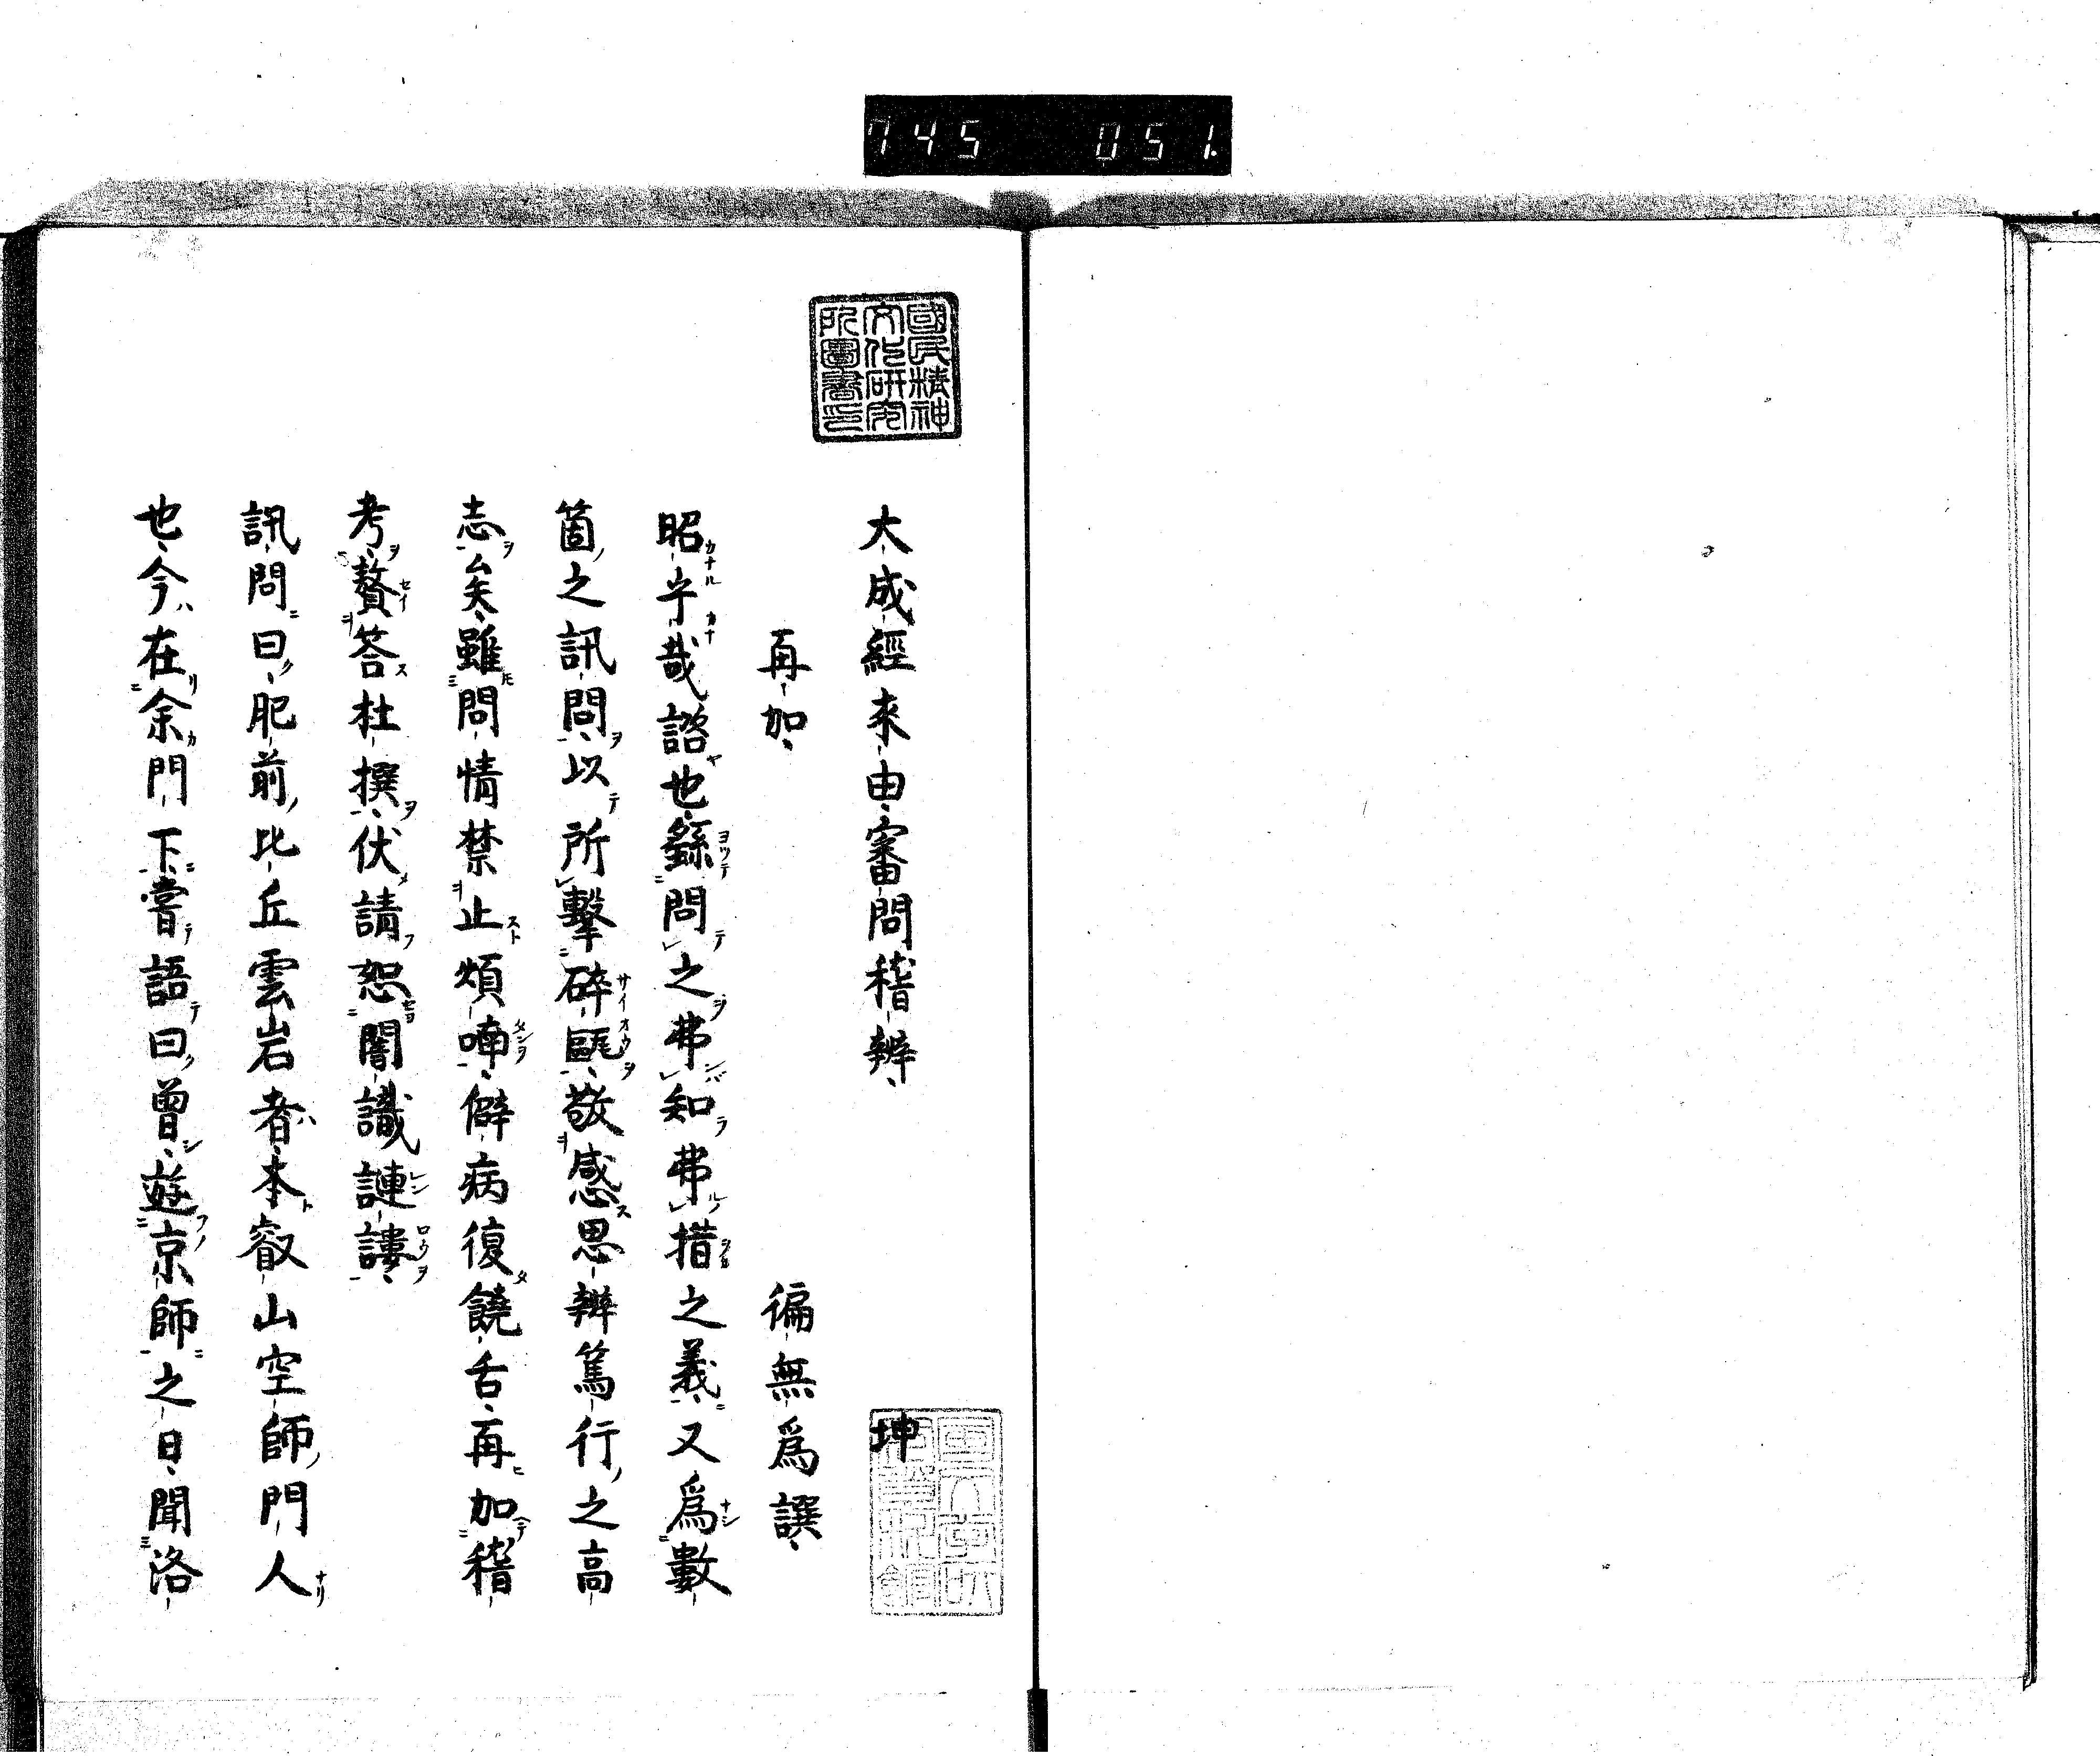 745 051
國民精神
文化研究
所圖書印
大成經來由審問稽辨 坤
再加 徧無爲譔
昭乎哉諮也繇問之弗知弗措之義又爲數
箇之訊問以所擊碎甌敬感思辨篤行之高
志矣雖問情禁止煩喃僻病復饒舌再加稽
考贅答杜撰伏請恕闇識謰謱
訊問曰肥前比丘雲岩者本叡山空師門人
也今在余門下嘗語曰曾遊京師之日聞洛